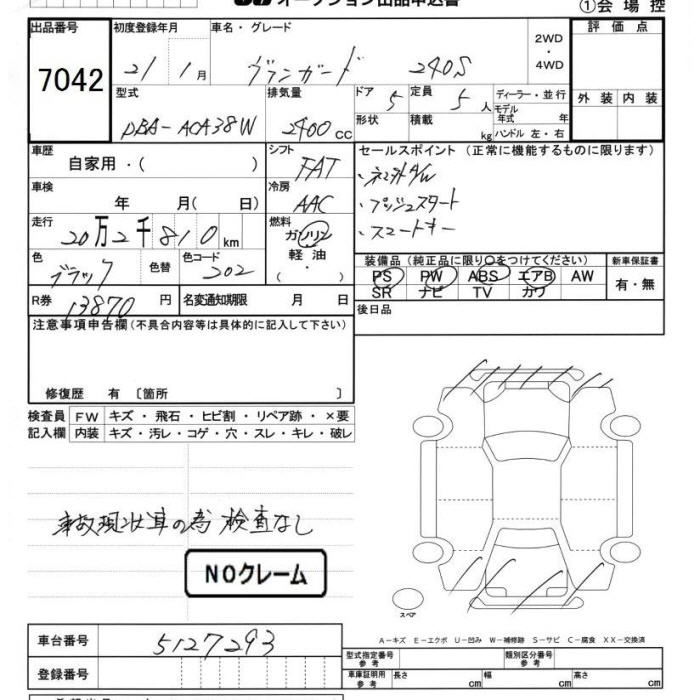 オークション出品申込書
①会場控
出品番号 初度登録年月 車名・グレード 2WD・4WD 評価点
7042 21 1月 ヴァンガード 240S
型式 排気量 ドア 定員 ディーラー・並行 外装 内装
DBA-ACA38W 2400cc 5 5人 モデル年式 年
形状 積載 kg ハンドル 左・右
車歴 シフト セールスポイント (正常に機能するものに限ります)
自家用・( ) FAT
車検 冷房
年 月( 日) AAC ・プッシュスタート
走行 燃料 ・スマートキー
20万2千810km ガソリン
色 色替 色コード 軽油 装備品 (純正品に限り○をつけてください) 新車保証書
ブラック 202 ( ・ ) PS PW ABS エアB AW 有・無
SR ナビ TV カワ
R券 13870円 名変通知期限 月 日 後日品
注意事項申告欄(不具合内容等は具体的に記入して下さい)
修復歴 有 〔箇所 〕
検査員 FW キズ・飛石・ヒビ割・リペア跡・×要
記入欄 内装 キズ・汚レ・コゲ・穴・スレ・キレ・破レ
事故現状車の為 検査なし
NOクレーム
スペア
A-キズ E-エクボ U-凹み W-補修跡 S-サビ C-腐食 XX-交換済
車台番号 5127293 型式指定番号 参考 類別区分番号 参考
登録番号 車庫証明用 参考 長さ cm 幅 cm 高さ cm